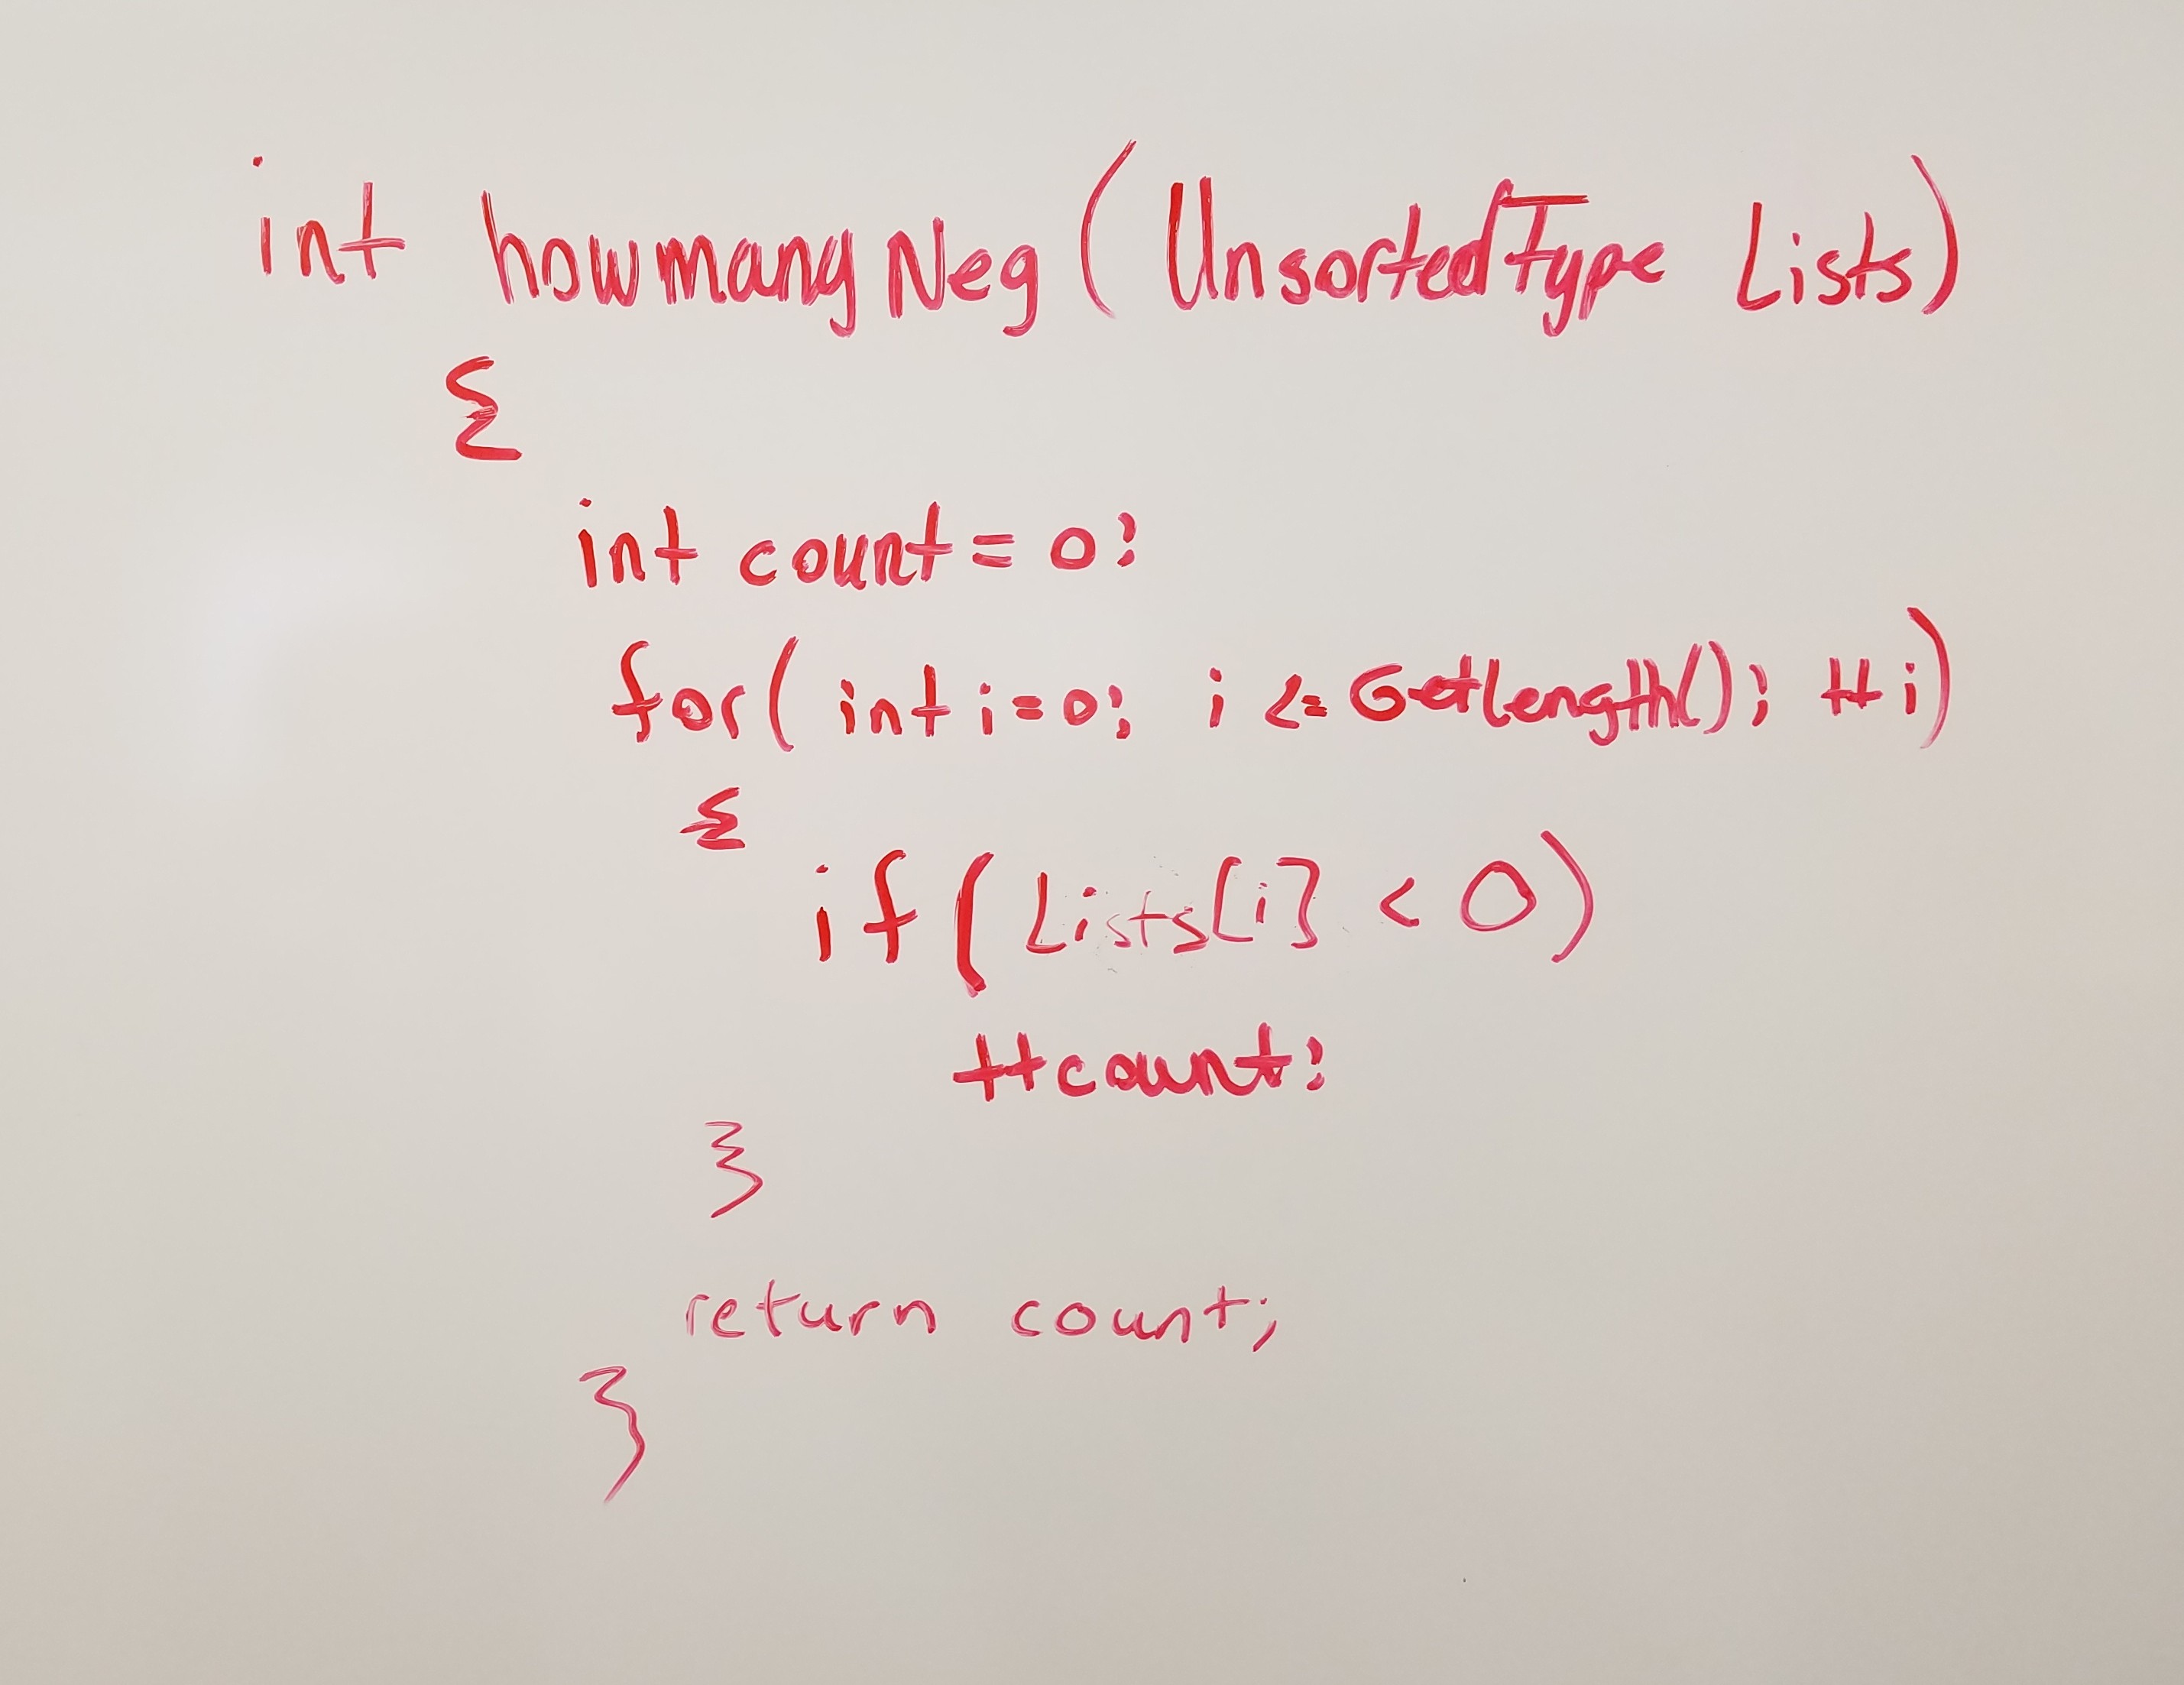 int howmanyNeg (UnsortedType Lists)
{
int count = 0;
for( int i=0; i <= Getlength(); ++i)
{
if ( Lists[i] < 0)
++count;
}
return count;
}